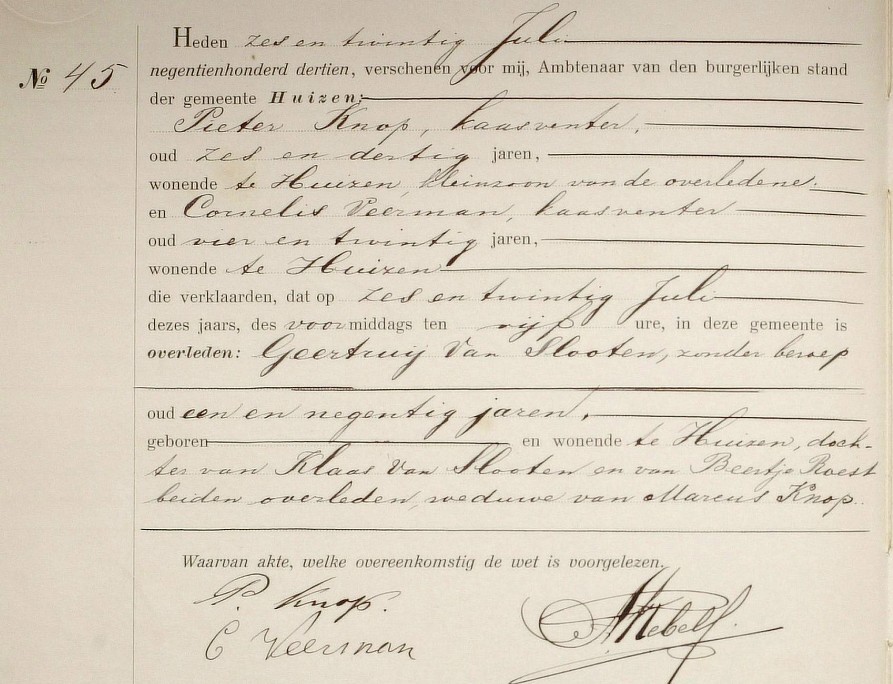 Heden zes en twintig Juli
No 45
negentienhonderd dertien, verschenen voor mij, Ambtenaar van den burgerlijken stand
der gemeente Huizen:
Pieter Knop, kaasventer,
oud zes en dertig jaren,
wonende te Huizen, kleinzoon van de overledene.
en Cornelis Veerman, kaasventer
oud vier en twintig jaren,
wonende te Huizen
die verklaarden, dat op zes en twintig Juli
dezes jaars, des voormiddags ten vijf ure, in deze gemeente is
overleden: Geertruij Van Slooten, zonder beroep
oud een en negentig jaren,
geboren en wonende te Huizen, doch-
ter van Klaas Van Slooten en van Beertje Roest
beiden overleden, weduwe van Marcus Knop.
Waarvan akte, welke overeenkomstig de wet is voorgelezen.
P. Knop.
C Veerman